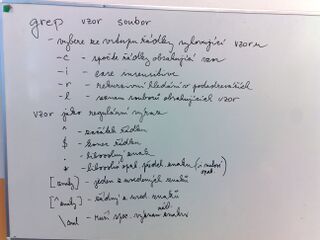 grep vzor soubor
- vybere ze vstupu řádky vyhovující vzoru
-c - spočte řádky obsahující vzor
-i - case insensitive
-r - rekurzivní hledání v podadresářích
-l - seznam souborů obsahujících vzor
vzor jako regulární výraz
^ - začátek řádku
$ - konec řádku
. - libovolný znak
* - libovolné opak. předch. znaku (i nulové opak.)
[znaky] - jeden z uvedených znaků
[^znaky] - žádný z uved. znaků
\znak - ruší spec. význam znaku